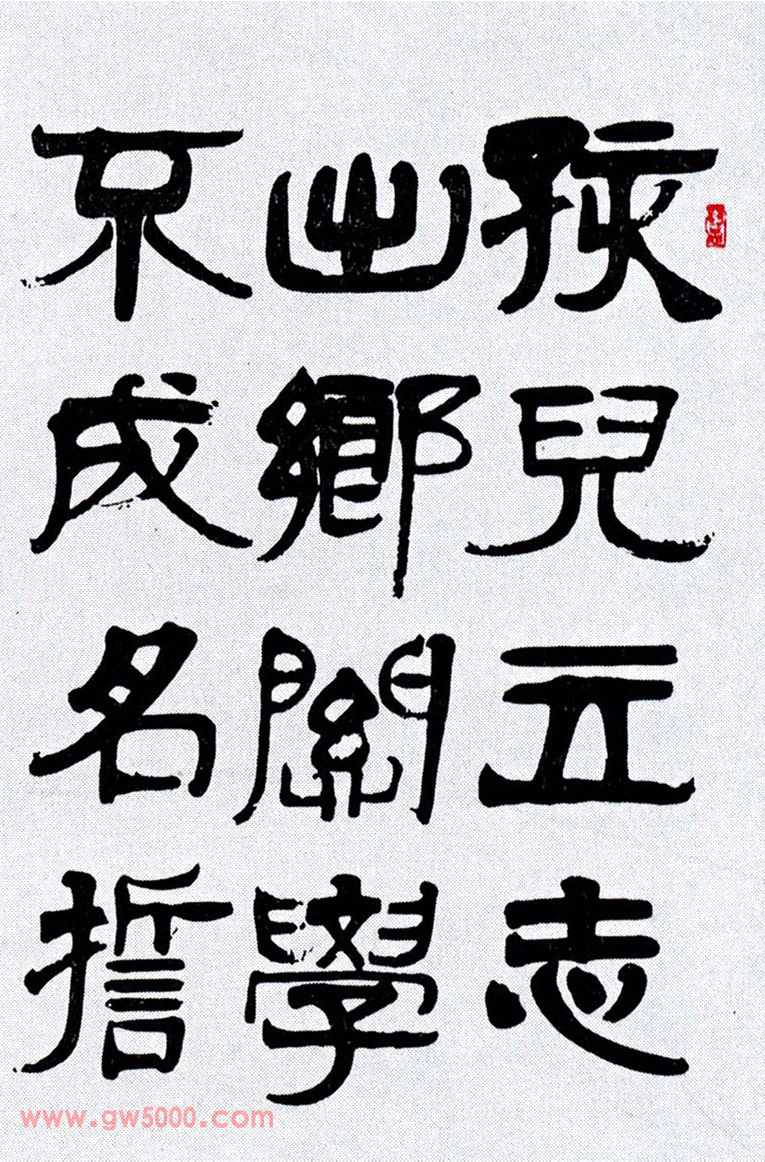 孩兒立志
出鄉關學
不成名誓
www.gw5000.com